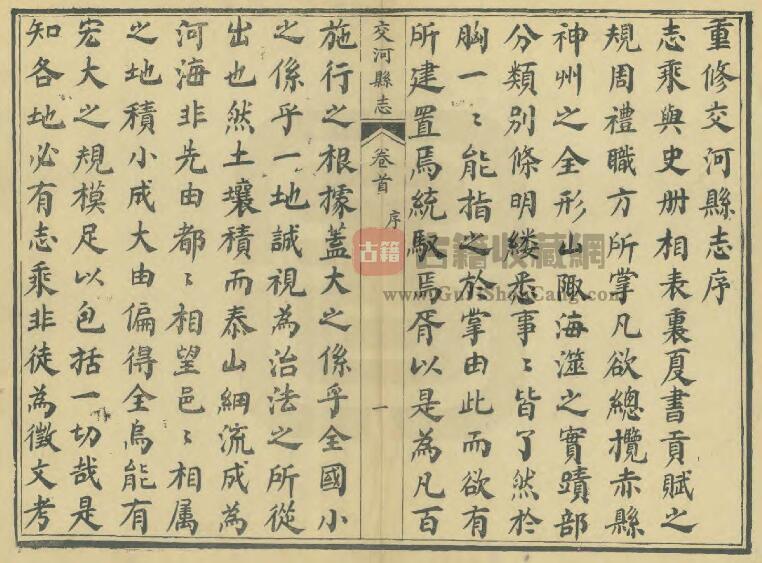 重修交河縣志序
志乘與史册相表裏夏書貢賦之
規周禮職方所掌凡欲總攬赤縣
神州之全形山陬海澨之實蹟部
分類別條明縷悉事〻皆了然於
胸一〻能指之於掌由此而欲有
所建置焉統馭焉胥以是為凡百
交河縣志 卷首 序 一
施行之根據蓋大之係乎全國小
之係乎一地誠視為治法之所從
出也然土壤積而泰山細流成為
河海非先由都〻相望邑〻相属
之地積小成大由偏得全烏能有
宏大之規模足以包括一切哉是
知各地必有志乘非徒為徵文考
古籍
古籍收藏網
www.GuJiShouCang.com